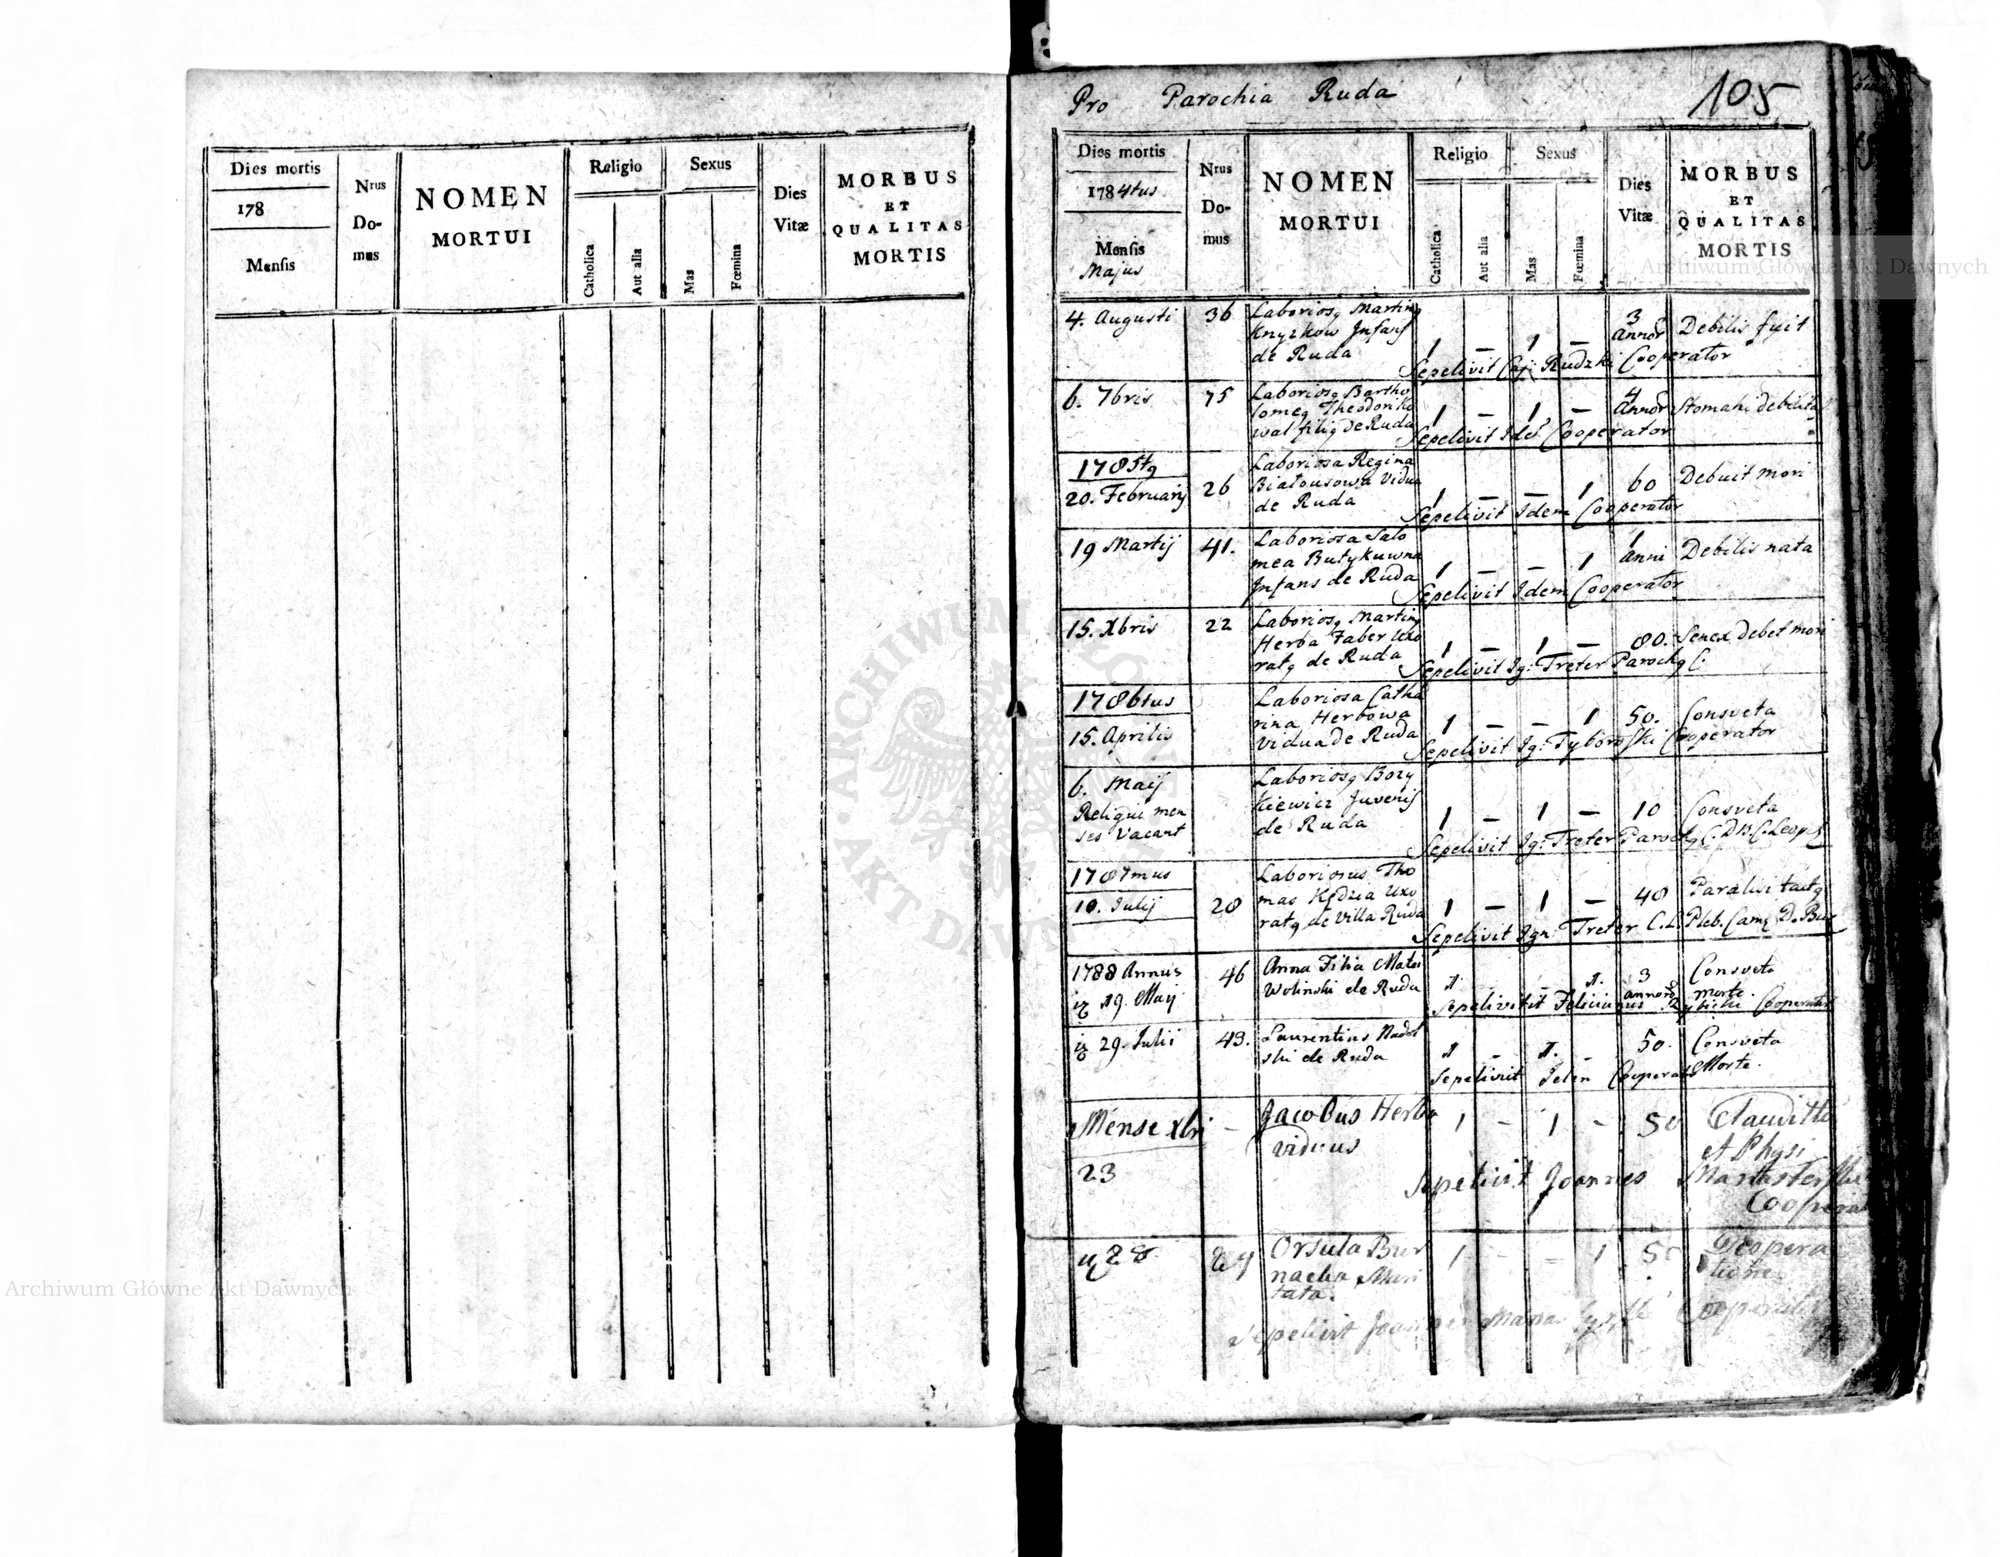 Dies mortis
178
Mensis
Nrus Do-mus
NOMEN
MORTUI
Religio
Catholica
Aut alia
Sexus
Mas
Fœmina
Dies
Vitæ
MORBUS
ET
QUALITAS
MORTIS
Pro Parochia Ruda
105
Dies mortis
1784tus
Mensis
Majus
Nrus
Do-
mus
NOMEN
MORTUI
Religio
Catholica
Aut alia
Sexus
Mas
Fœmina
Dies
Vitæ
MORBUS
ET
QUALITAS
MORTIS
4. Augusti 36 Laboriosq Martinq
Knyzkow Infans
de Ruda 1 – 1 – 3 Annor Debilis fuit
Sepelivit Caj: Rudzki Cooperator
6. 7bris 75 Laboriosq Bartho
lomeq Theodoriko
wal filiq de Ruda 1 – 1 – 4 Annor Stomahi debilitas
Sepelivit Ide Cooperator
1785tq
20. Februarij 26 Laboriosa Regina
Białousowa Vidua
de Ruda 1 – – 1 60 Debuit mori
Sepelivit Idem Cooperator
19 Martij 41. Laboriosa Salo
mea Butykuwna
Infans de Ruda 1 – – 1 1 anni Debilis nata
Sepelivit Idem Cooperator
15. Xbris 22 Laboriosq Martinq
Herba Faber Uxo
ratq de Ruda 1 – 1 – 80. Senex debet mori
Sepelivit Ig: Treter Parochq C.
1786tus
15. Aprilis Laboriosa Catha
rina Herbowa
Vidua de Ruda 1 – – 1 50. Consveta
Sepelivit Ig: Tyborski Cooperator
6. Maij Laboriosq Bozy
kiewicz Juvenis
de Ruda 1 – 1 – 10 Consveta
Reliqui men
ses vacant
Sepelivit Ig: Treter Parochq C. D B. C. Leopl
1787mus
10. Julij 28 Laboriosus Tho
mas Kędzia Uxo
ratq de Villa Ruda 1 – 1 – 40 Paralisi tactq
Sepelivit Ign: Treter C. L. Pleb. Cam D. Bus
1788 Annus
19. Maij 46 Anna Filia Matei
Wolinski de Ruda 1 - - 1. 3 annor Consveta
morte.
Sepelivitit Felicianus Cooperator
29. Julii 43. Laurentius Nadol
ski de Ruda 1 - 1. - 50. Consveta
Morte.
Sepelivit Cooperator
Mense Xbri
23 – Jacobus Herba
viduus 1 - 1 - 50
et Physi
Sepelivit Joannes
Cooperat
28 Orsula Bur
nacha Mari
tata. 1 - - 1
Sepelivit Joannes Cooperator
Archiwum Główne Akt Dawnych
ARCHIWUM GŁÓWNE AKT DAWNYCH
Archiwum Główne Akt Dawnych